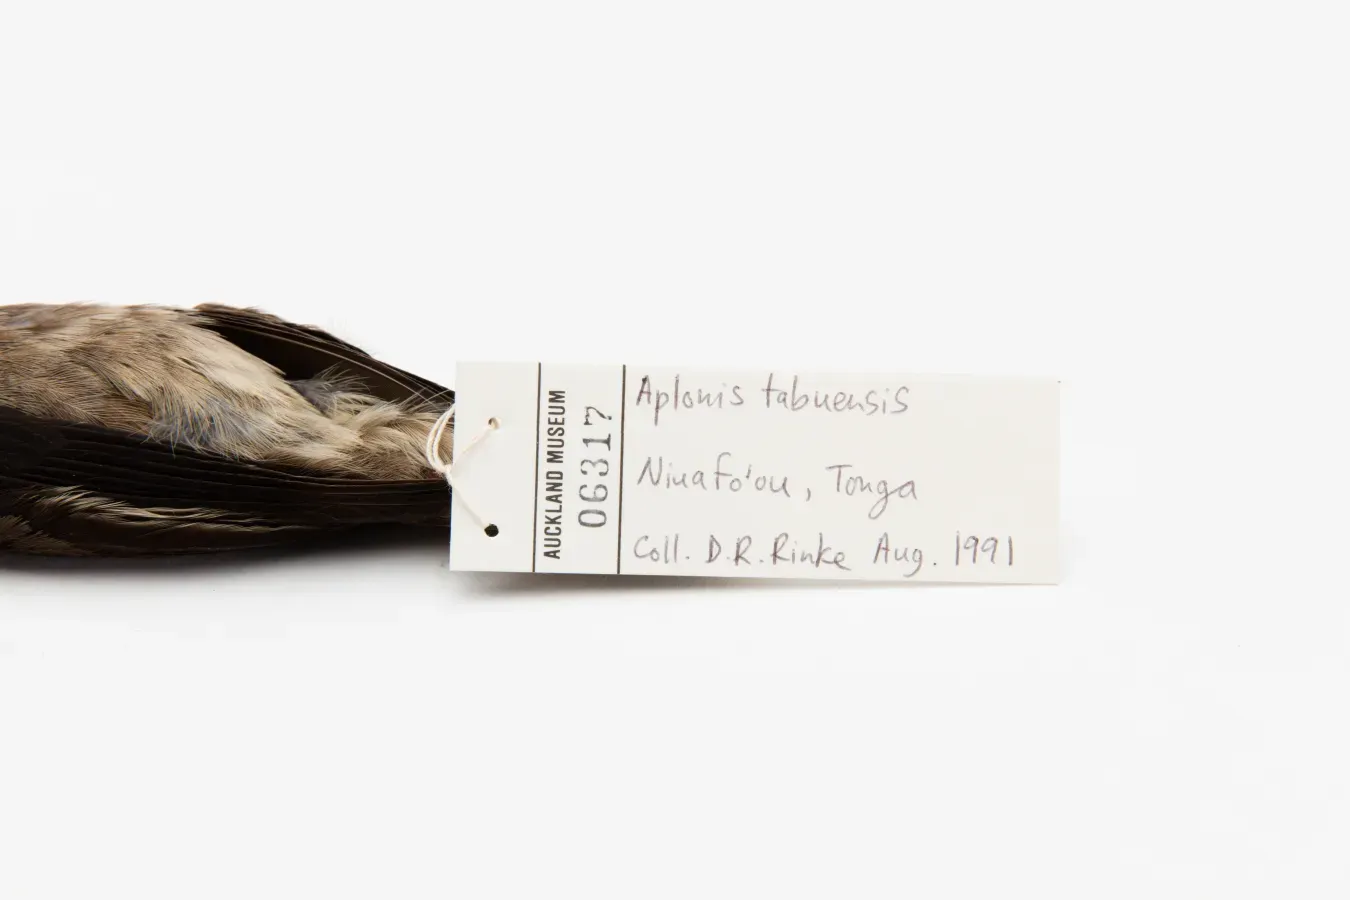 AUCKLAND MUSEUM
06317
Aplonis tabuensis
Niuafo'ou, Tonga
Coll. D.R. Rinke Aug. 1991